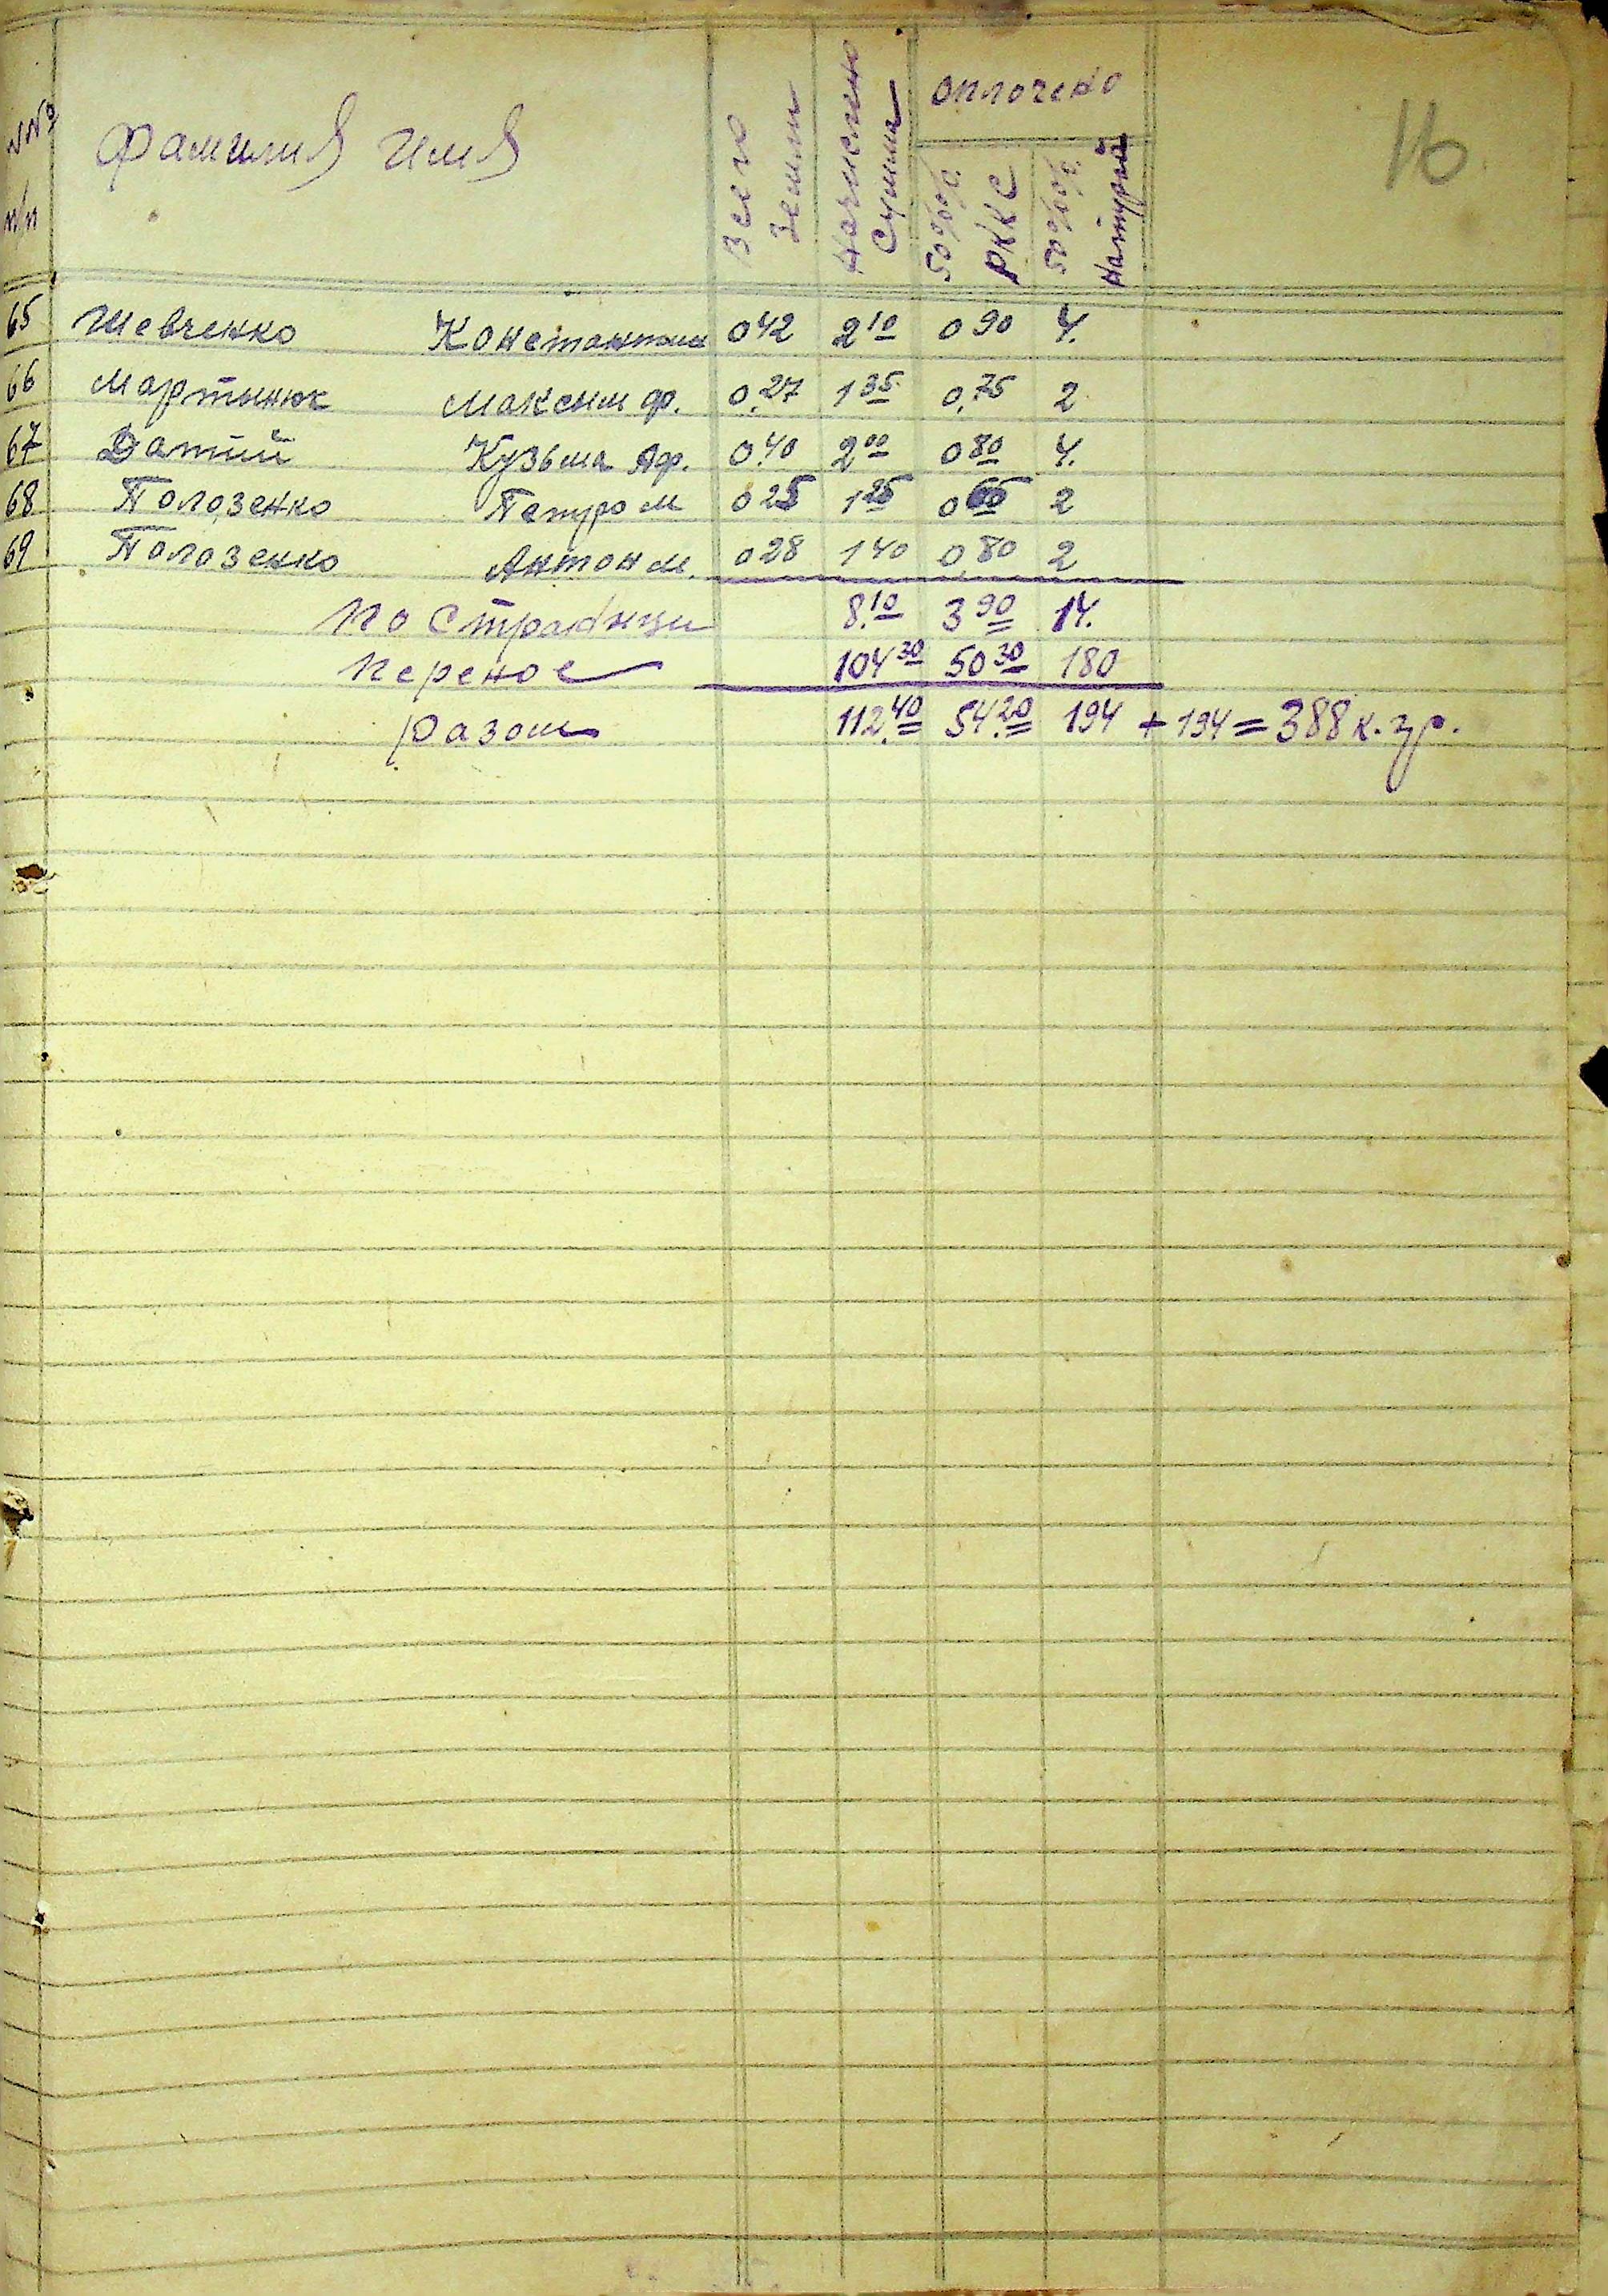 16
NNº п/п Фамилия Имя Всего Земли Начислено Сумма оплочено
50%% РККС 50%% Натурой
65 Шевченко Константин 0 42 2 10 0 90 4.
66 Мартынюк Максим Ф. 0,27 1 35 0,75 2
67 Датий Кузьма Аф. 0.40 2 00 0 80 4.
68 Полозенко Петро М 0 25 1 25 0 65 2
69 Полозенко Антон М. 0 28 1 40 0,80 2
По Странице 8.10 3 90 14.
Перенос 104 30 50 30 180
разом 112.40 54.20 194 + 194 = 388 к. гр.